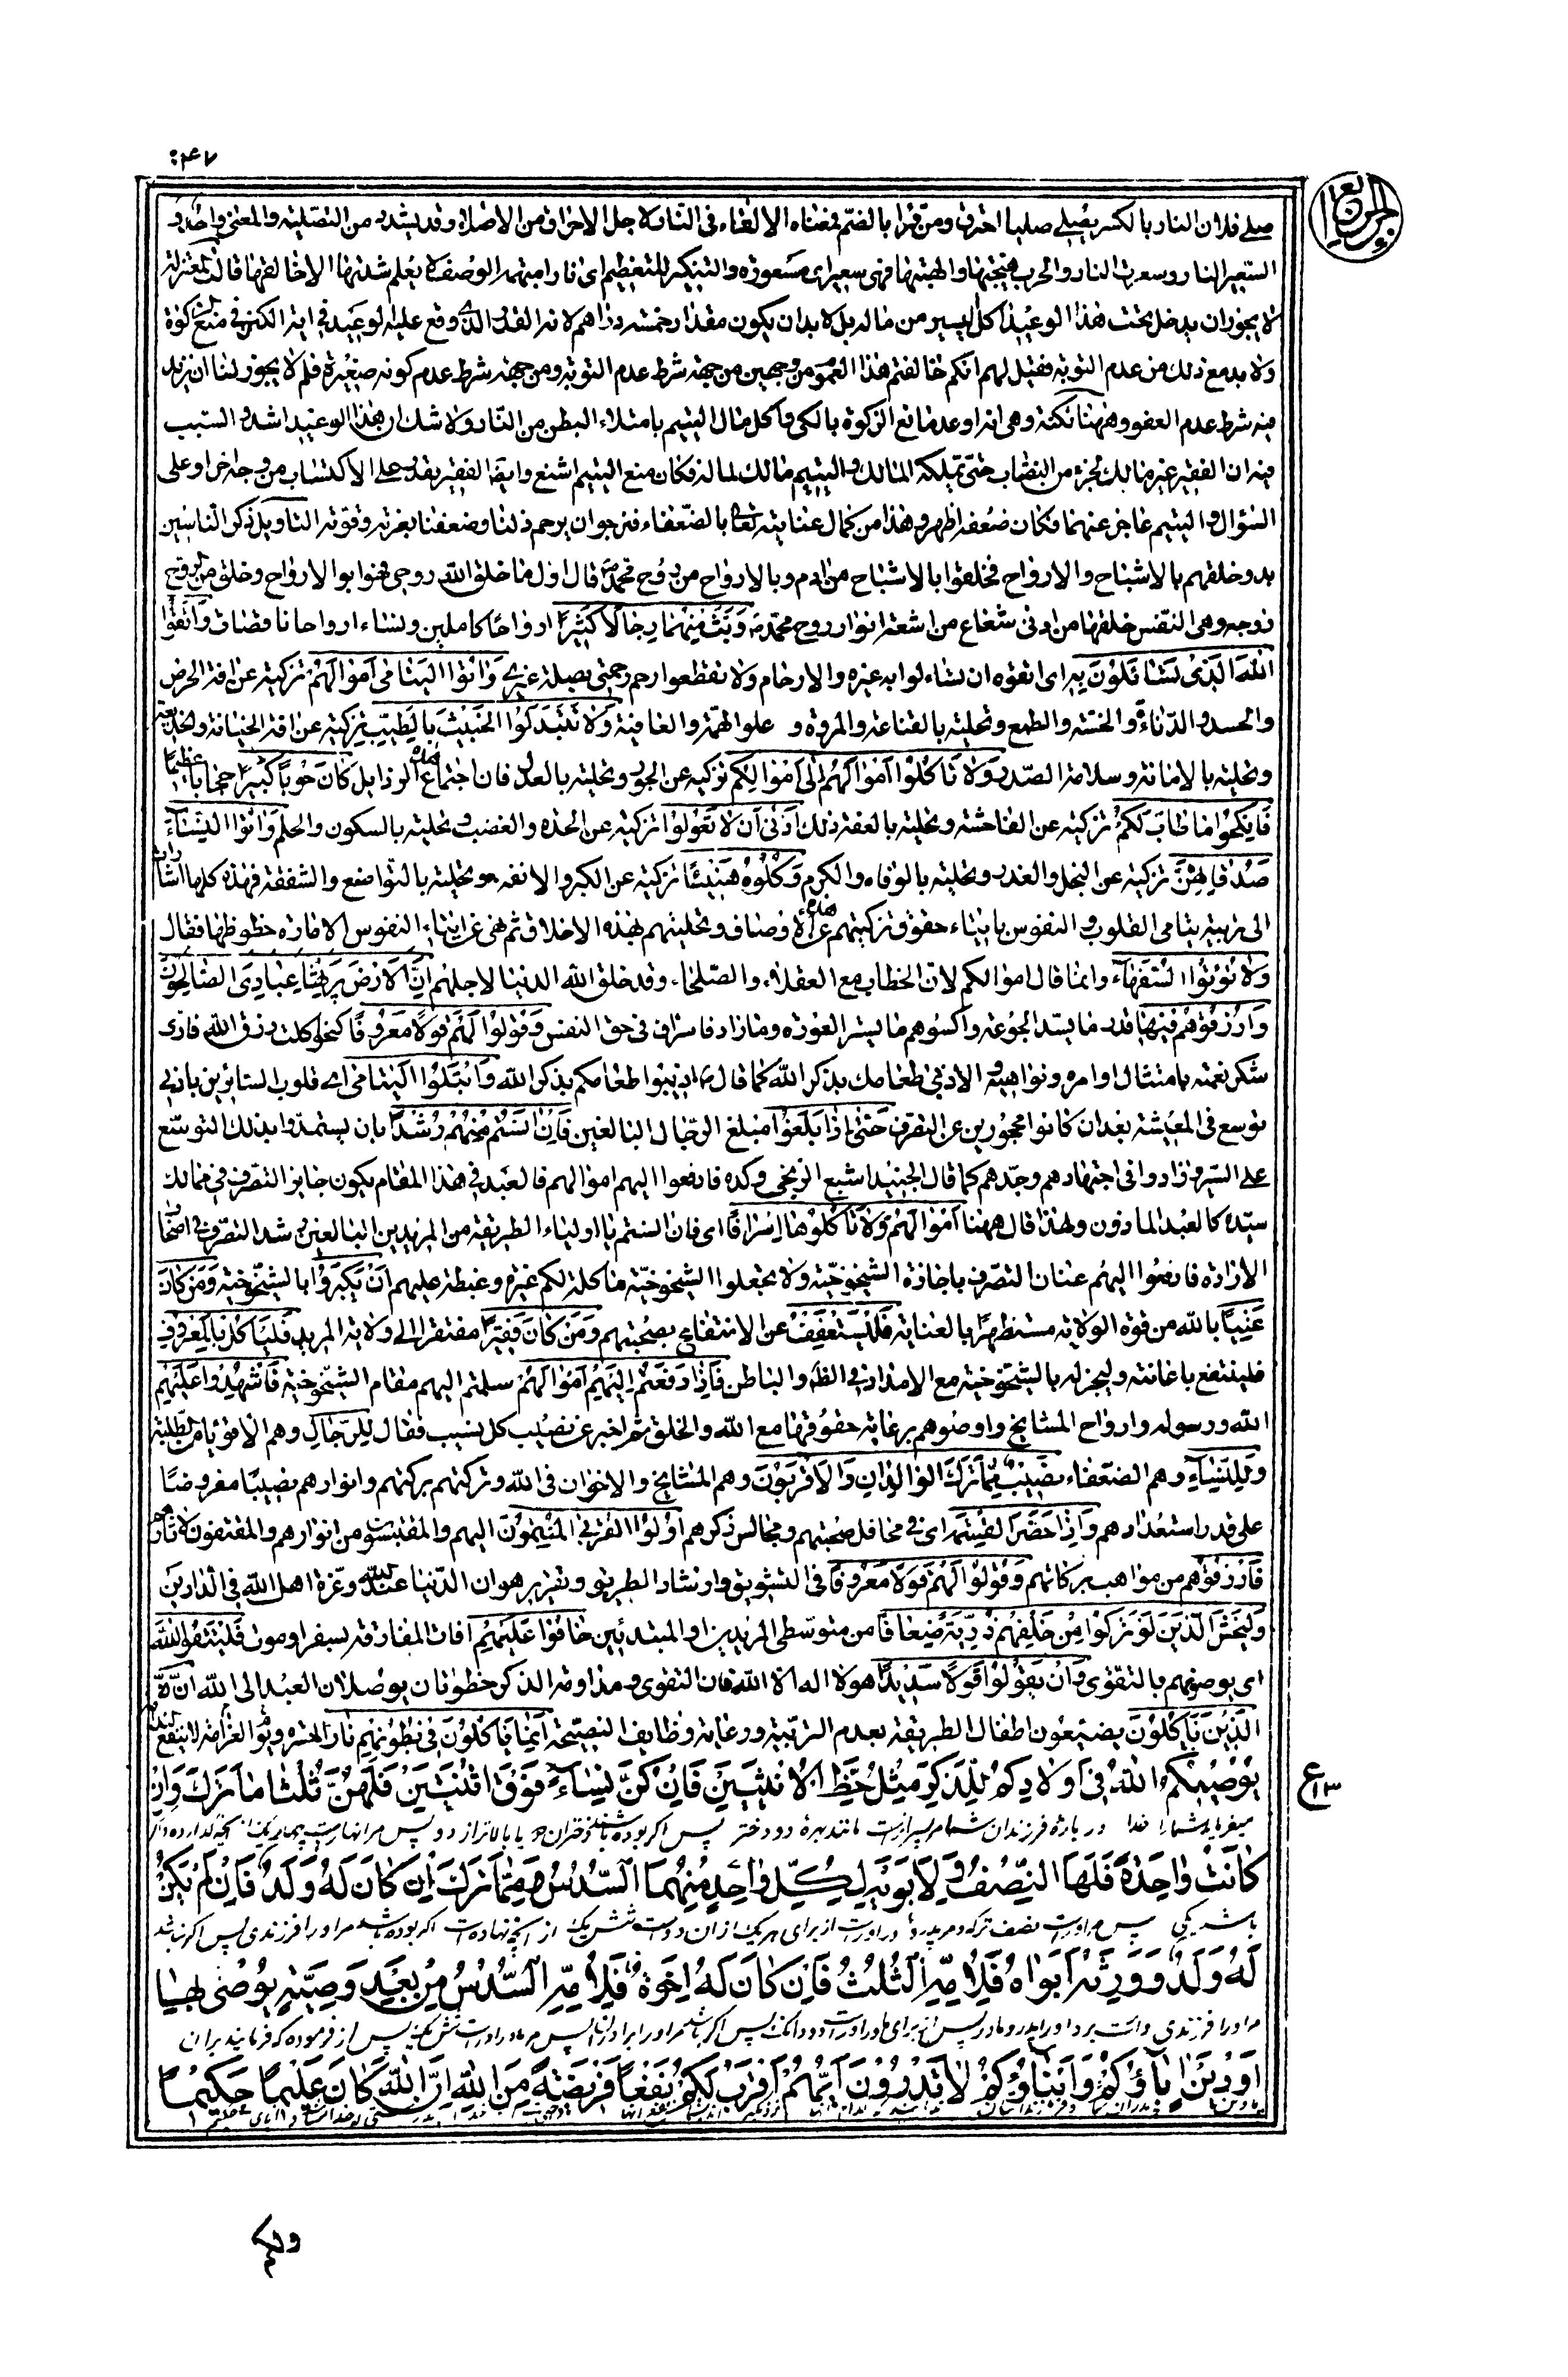 ۴۶۷
الجزء الرابع
صلى فلان النار بالكسر يصلى صليا احترق ومن قرأ بالضم فمعناه الالقاء في النار لاجل الاحراق من الاصلاء وقد يشدد من التصلية والمعنى واحد و
السعير النار وسعرت النار والحرب هيجتها والهبتها فهي سعير اي مسعورة والتنكير للتعظيم اي نارا مبهمة الوصف لا يعلم شدتها الا خالقها قالت المعتزلة
لا يجوز ان يدخل تحت هذا الوعيد اكل اليسير من ماله بل لا بد ان يكون مقدار خمسة دراهم لانه القدر الذي وقع عليه الوعيد في اية الكنز في منع الزكوة
ولا بد مع ذلك من عدم التوبة فقيل لهم انكم خالفتم هذا العموم من وجهين من جهة شرط عدم التوبة ومن جهة شرط عدم كونه صغيرة فلم لا يجوز لنا ان نزيد
فيه شرط عدم العفو وههنا نكتة وهي انه اوعد مانع الزكوة بالكي وآكل مال اليتيم بامتلاء البطن من النار ولا شك ان هذا الوعيد اشد والسبب
فيه ان الفقير غير مالك لجزء من النصاب حتى تملكه المالك واليتيم مالك لماله فكان منع اليتيم اشنع وايضا الفقير يقدر على الاكتساب من وجه اخر او على
السؤال واليتيم عاجز عنهما فكان ضعفه اظهر وهذا من كمال عنايته تعالى بالضعفاء فنرجوان يرحم ذلنا وضعفنا بعزته وقوته التاويل ذكر الناسين
بدو خلقهم بالاشباح والارواح فخلقوا بالاشباح من ادم وبالارواح من روح محمد قال اول ما خلق الله روحي فهو ابو الارواح وخلق من الروح
زوجه وهي النفس خلقها من ادنى شعاع من اشعة انوار روح محمد وبث منهما رجالا كثيرا ارواحا كاملين ونساء ارواحا ناقصات واتقوا
الله الذي تسائلون به اي اتقوه ان تساءلوا به غيره والارحام ولا تقطعوا رحم رحمتي بصلة غيري واتوا اليتامى اموالهم تزكية عن افة الحرص
والحسد والدناءة والخسة والطمع وتحلية بالقناعة والمروة و علو الهمة والعافية ولا تتبدلوا الخبيث بالطيب تزكية عن افة الخيانة والخديعة
وتحلية بالامانة وسلامة الصدر ولا تاكلوا اموالهم الى اموالكم تزكية عن الجور وتحلية بالعدل فان اجتماع هذه الرذايل كان حوبا كبيرا حجابا عظيما
فانكحوا ما طاب لكم تزكية عن الفاحشة وتحلية بالعفة ذلك ادنى ان لا تعولوا تزكية عن الحدة والغضب وتحلية بالسكون والحلم واتوا النساء
صدقاتهن تزكية عن البخل والغدر وتحلية بالوفاء والكرم وكلوه هنيئا تزكية عن الكبر والانفة وتحلية بالتواضع والشفقة فهذه كلها اشارات
الى تربية يتامى القلوب والنفوس بايتاء حقوق تزكيتهم عن هذه الاوصاف وتحليتهم بهذه الاخلاق ثم نهى عن ايتاء النفوس الامارة حظوظها فقال
ولا تؤتوا السفهاء وانما قال اموالكم لان الخطاب مع العقلاء والصلحاء وقد خلق الله الدنيا لاجلهم ان الارض يرثها عبادي الصالحون
وارزقوهم فيها قدر ما يسد الجوعة واكسوهم ما يستر العورة وما زاد فاسراف في حق النفس وقولوا لهم قولا معروفا كنحو اكلت رزق الله فادى
شكر نعمته بامتثال اوامره ونواهيه والا ذيبي طعامك بذكر الله كما قال اذيبوا طعامكم بذكر الله وابتلوا اليتامى اي قلوب السايرين بادنى
توسع في المعيشة بعد ان كانوا محجورين عن التصرف حتى اذا بلغوا مبلغ الرجال البالغين فان انستم منهم رشدا بان يستمدوا بذلك التوسع
على السير وزادوا في اجتهادهم وجدهم كما قال الجنيد اشبع الزنجي وكده فادفعوا اليهم اموالهم فالعبد في هذا المقام يكون جايز التصرف في ممالك
سيده كالعبد الماذون ولهذا قال ههنا اموالهم ولا تاكلوها اسرافا اي فان انستم يا اولياء الطريقة من المريدين البالغين رشد التصرف في اصحاب
الارادة فادفعوا اليهم عنان التصرف باجازة الشيخوخية ولا تجعلوا الشيخوخية ماكلة لكم غيرة وغبطة عليهم ان يكبروا بالشيخوخية ومن كان
غنيا بالله من قوة الولاية مستظهرا بالعناية فليستعفف عن الانتفاع بصحبتهم ومن كان فقيرا مفتقرا الى ولاية المريد فلياكل بالمعروف
فلينتفع باعانته وليجز له بالشيخوخية مع الامداد في الظاهر والباطن فاذا دفعتم اليهم اموالهم سلمتم اليهم مقام الشيخوخية فاشهدوا عليهم
الله ورسوله وارواح المشايخ واوصوهم برعاية حقوقها مع الله والخلق ثم اخبر عن نصيب كل نسيب فقال للرجال وهم الاقوياء من الطلبة
وللنساء وهم الضعفاء نصيب مما ترك الوالدان والاقربون وهم المشايخ والاخوان في الله وتركتهم بركتهم وانوارهم نصيبا مفروضا
على قدر استعدادهم واذا حضر القسمة اي في محافل صحبتهم ومجالس ذكرهم اولوا القربى المنتمون اليهم والمقتبسون من انوارهم والمقتفون لاثارهم
فارزقوهم من مواهب بركاتهم وقولوا لهم قولا معروفا في التشويق وارشاد الطريق وتقرير هوان الدنيا عند الله وعزة اهل الله في الدارين
وليخش الذين لو تركوا من خلفهم ذرية ضعافا من متوسطي المريدين والمبتدئين خافوا عليهم افات المفارقة بسفر او موت فليتقوا الله
اي يوصيهم بالتقوى وان يقولوا قولا سديدا هو لا اله الا الله فان التقوى ومداومة الذكر خطوتان يوصلان العبد الى الله ان
الذين ياكلون يضيعون اطفال الطريقة بعدم التربية ورعاية وظايف النصيحة انما ياكلون في بطونهم نار الحسرة والغرامة لا ينتفع
يُوصِيكُمُ اللهُ فِي أَوْلَادِكُمْ لِلذَّكَرِ مِثْلُ حَظِّ الْأُنْثَيَيْنِ فَإِنْ كُنَّ نِسَاءً فَوْقَ اثْنَتَيْنِ فَلَهُنَّ ثُلُثَا مَا تَرَكَ وَإِنْ
ع ۱۳
ميفرمايد شما را خدا در بارهٔ فرزندان شما مر پسر راست مانند بهرهٔ دو دختر پس اگر بوده باشند دختران بالاتر از دو پس مر انها راست
كَانَتْ وَاحِدَةً فَلَهَا النِّصْفُ وَلِأَبَوَيْهِ لِكُلِّ وَاحِدٍ مِنْهُمَا السُّدُسُ مِمَّا تَرَكَ إِنْ كَانَ لَهُ وَلَدٌ فَإِنْ لَمْ يَكُنْ
باشد يكى پس مر اوراست نصف تركه و مر پدر و مادر اوراست از براى هر يك از ان دو شش يك از آنچه نهاده است اگر بوده باشد مر او را فرزندى پس اگر نباشد
لَهُ وَلَدٌ وَوَرِثَهُ أَبَوَاهُ فَلِأُمِّهِ الثُّلُثُ فَإِنْ كَانَ لَهُ إِخْوَةٌ فَلِأُمِّهِ السُّدُسُ مِنْ بَعْدِ وَصِيَّةٍ يُوصِي بِهَا
مر او را فرزندى و ارث برد او را پدر و مادر پس از براى مادر اوراست پس اگر باشد مر او را برادران پس مر مادر اوراست شش يك پس از فرموده كه فرمايد بر ان
أَوْ دَيْنٍ آبَاؤُكُمْ وَأَبْنَاؤُكُمْ لَا تَدْرُونَ أَيُّهُمْ أَقْرَبُ لَكُمْ نَفْعًا فَرِيضَةً مِنَ اللهِ إِنَّ اللهَ كَانَ عَلِيمًا حَكِيمًا
ولكم